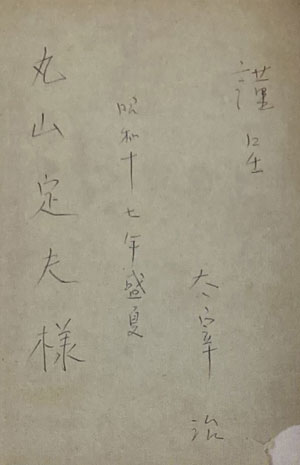 謹呈
太宰治
昭和十七年盛夏
丸山定夫様